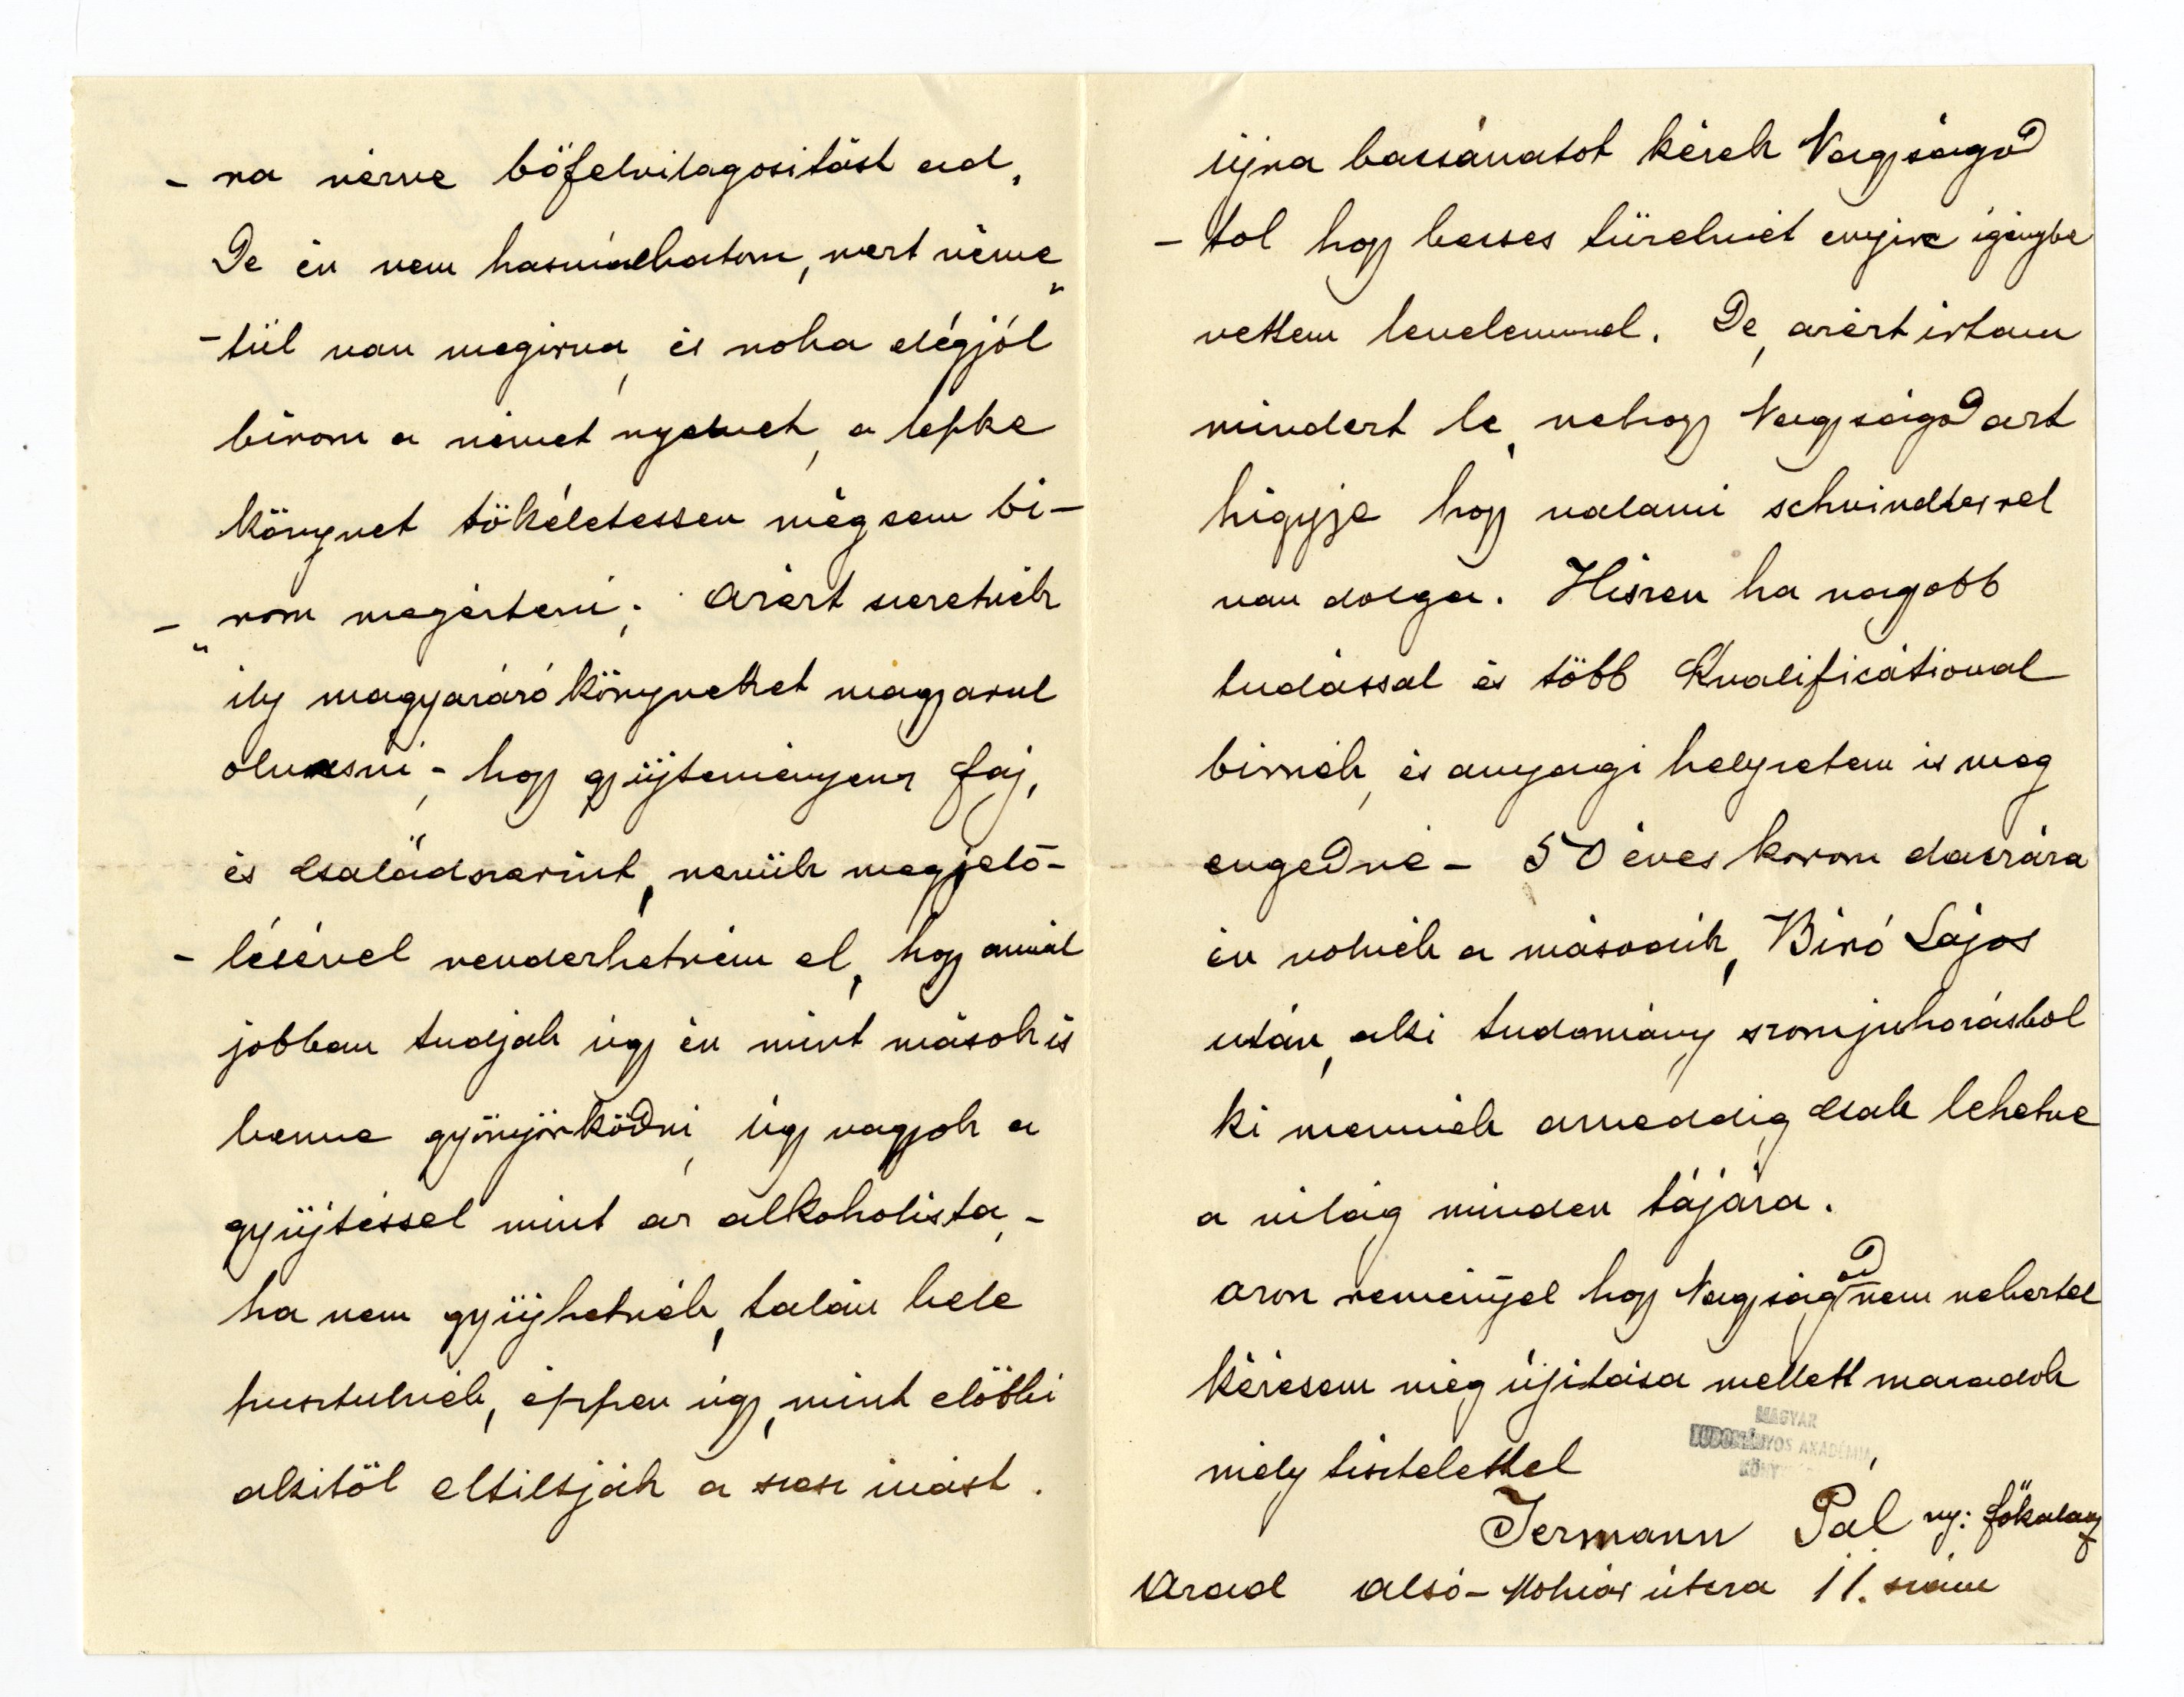 - ra nézve böfelvilagositást ad,
De én nem hasnálhatom, mert néme„
-tül van megirva, és noha elégjól
birom a német nyelvet, a lepke
könyvet tökéletessen mégsem bi-
-„rom megérteni; Azért szeretnék
ily magyarázó könyveket magyarul
olvasni; - hogy gyüjteményem faj,
és családszerint, nevük megjelö-
- lésével rendezhetném el, hogy annál
jobban tudjak úgy én mint mások is
benne gyönyörködni, úgy vagyok a
gyüjtéssel mint az alkoholista, -
ha nem gyüjhetnék, talán bele
pusztulnék, éppen úgy, mint elöbbi
akitöl eltiltják a szesz ivást.
újra bacsánatot kérek Nagyságod
- tol hogy becses türelmét enyire igénybe
vettem levelemmel. De, azért irtam
mindezt le, nehogy Nagyságod azt
higyje hogy valami schvindlerrel
van dolga. Hiszen ha nagobb
tudással és több Kvalificátioval
birnék, és anyagi helyzetem is meg
engedné - 50 éves korom daczára
én volnék a második, Biró Lajos
után, aki tudomány szomjuhozásbol
ki mennék ameddig csak lehetne
a világ minden tájára.
azon reménnyel hogy Nagyságod nem neheztel
kérésem még újitása mellett maradok
mély tisztelettel
MAGYAR
TUDOMÁNYOS AKADÉMIA
Jermann Pál ny: fökalauz
Arad Alsó-Molnár útcza 11. szám